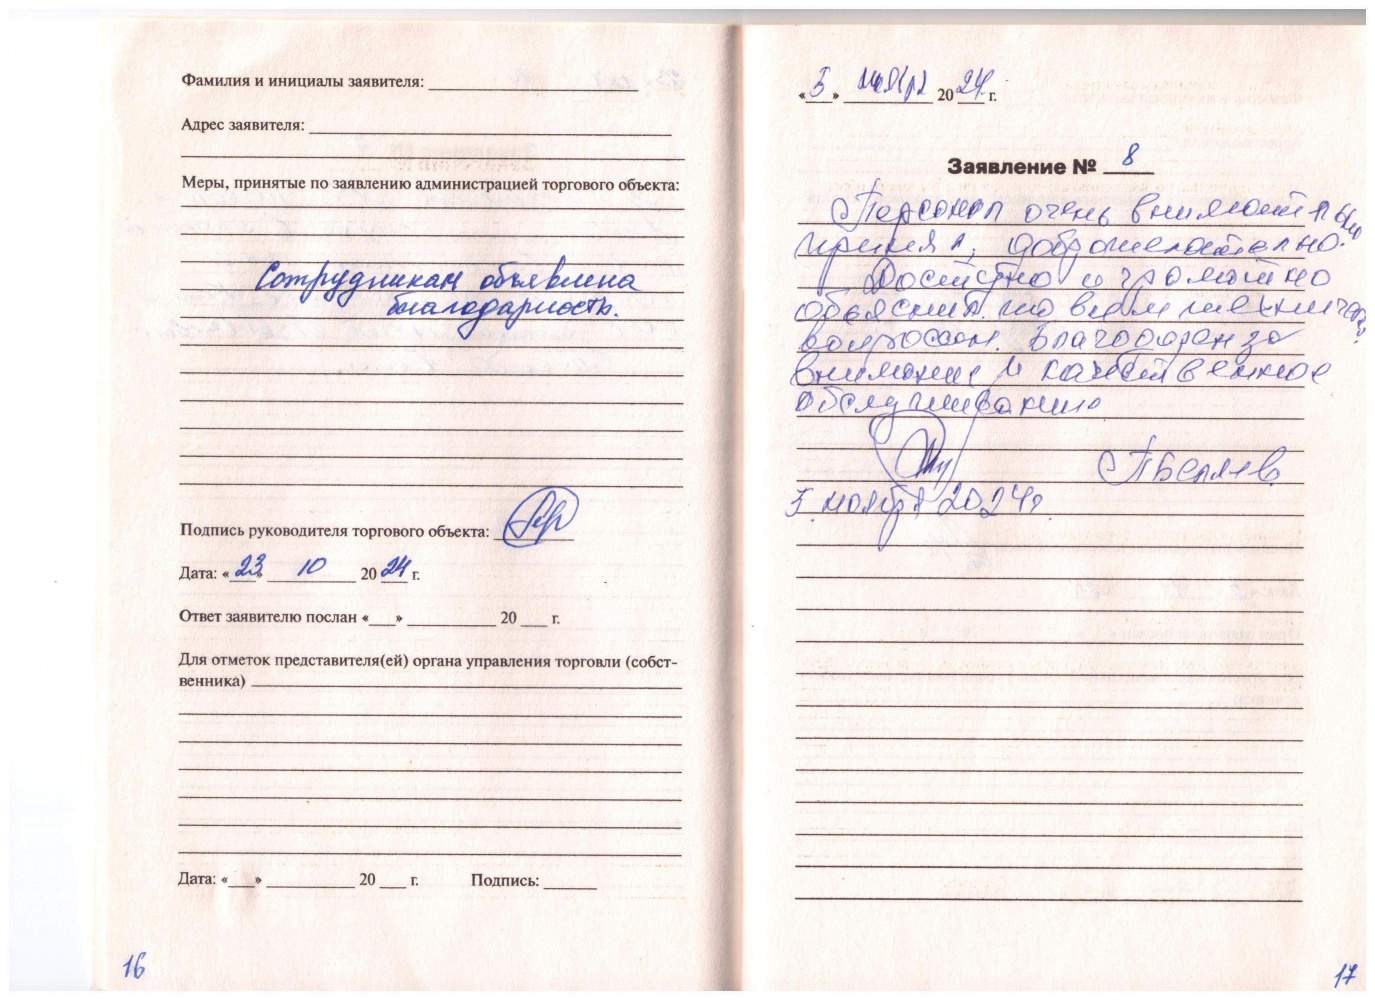 Фамилия и инициалы заявителя:
Адрес заявителя:
Меры, принятые по заявлению администрацией торгового объекта:
Сотрудникам объявлена
благодарность.
Подпись руководителя торгового объекта:
Дата: «23» 10 2024 г.
Ответ заявителю послан «___» 20 ___ г.
Для отметок представителя(ей) органа управления торговли (собст-
венника)
Дата: «___» 20 ___ г. Подпись:
16
«5» ноября 2024 г.
Заявление № 8
Персонал очень внимательно
принял, доброжелательно.
Доступно и грамотно
объяснил по всем
вопросам. Благодарен за
внимание и качественное
обслуживание
Беляев
5 ноября 2024г.
17